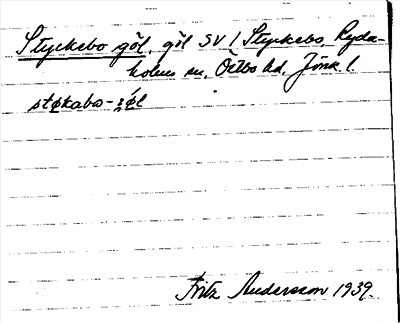 Styckebo göl, göl SV / Styckebo, Ryda-
holms sn, Östbo hd, Jönk. l.
støkabo-
Fritz Andersson 1939